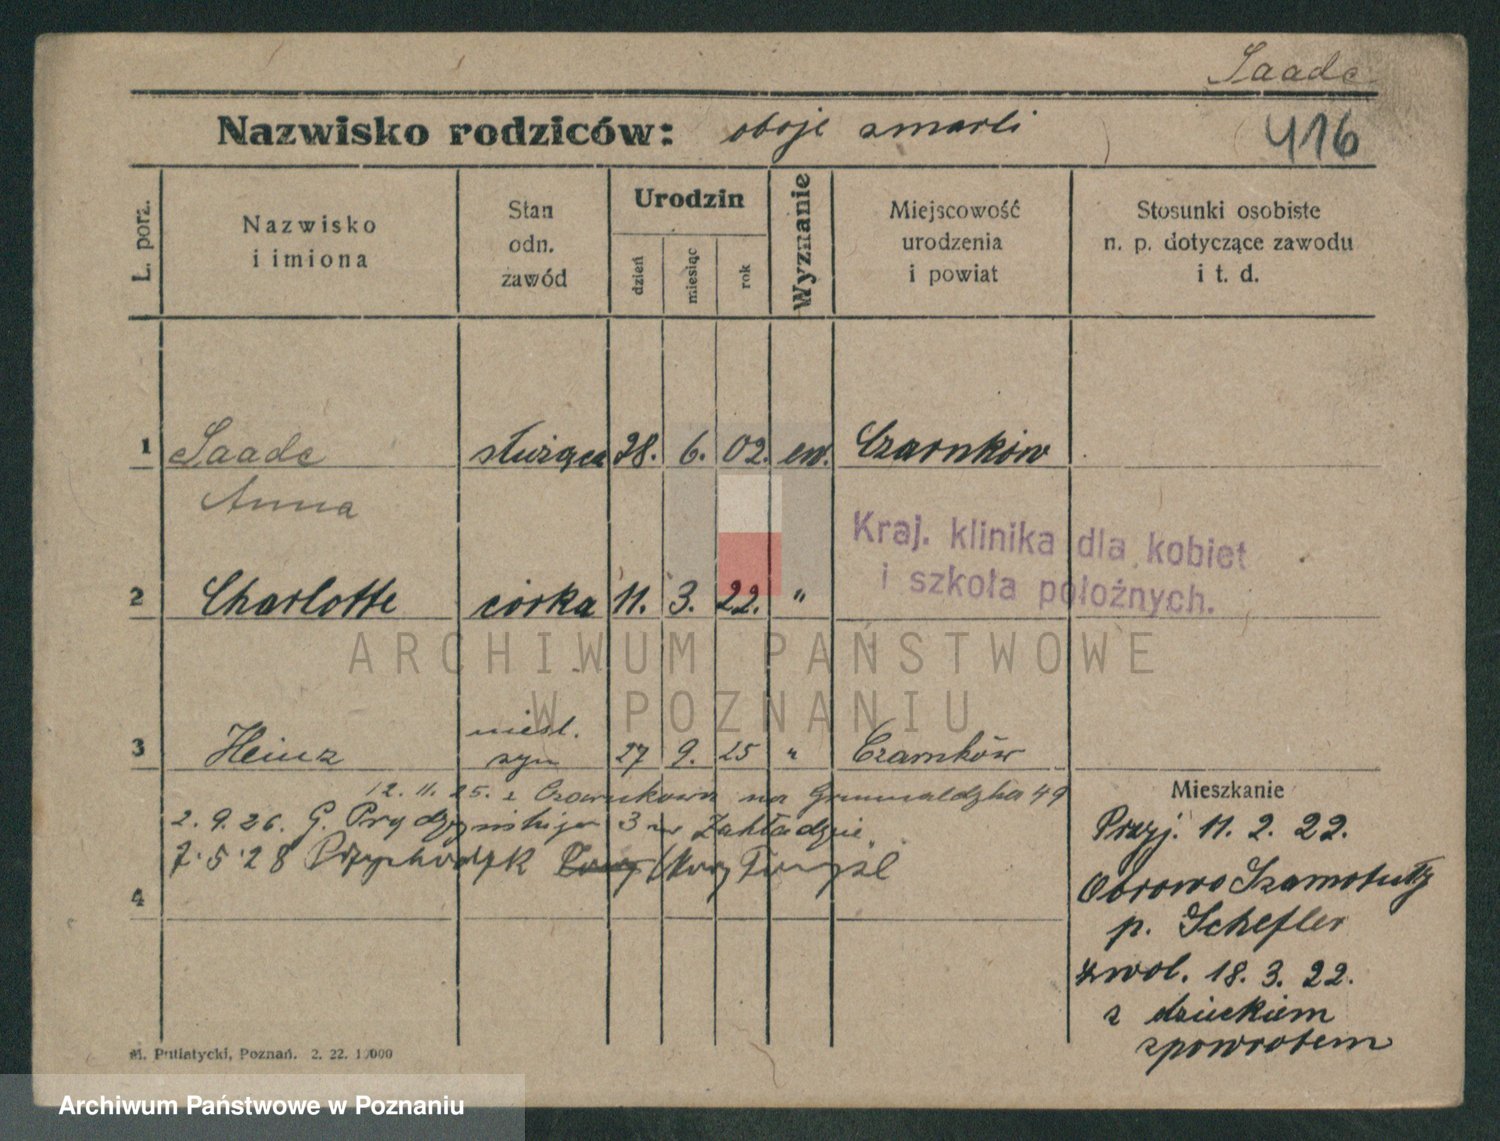 Saade
Nazwisko rodziców: oboje zmarli
416
L. porz.
Nazwisko
i imiona
Stan
odn.
zawód
Urodzin
dzień
miesiąc
rok
Wyznanie
Miejscowość
urodzenia
i powiat
Stosunki osobiste
n. p. dotyczące zawodu
i t. d.
1 Saade służąca 28. 6. 02. ew. Czarnków
Anna
Kraj. klinika dla kobiet
i szkoła położnych.
2 Charlotte córka 11. 3. 22. "
ARCHIWUM PAŃSTWOWE
W POZNANIU
nieśl.
3 Heinz syn 27 9. 25 " Czarnków
12. 11. 25. z Czarnkowa na Grunwaldzka 49
2. 9. 26. G. Prądzyńskiego 3 w Zakładzie
7.5.28 Przychodzk Nowy Tomyśl
4
Mieszkanie
Przyj. 11. 2. 22.
Obrowo Szamotuły
p. Schefler
zwol. 18. 3. 22.
z dzieckiem
zpowrotem
M. Putiatycki, Poznań. 2. 22. 10000
Archiwum Państwowe w Poznaniu